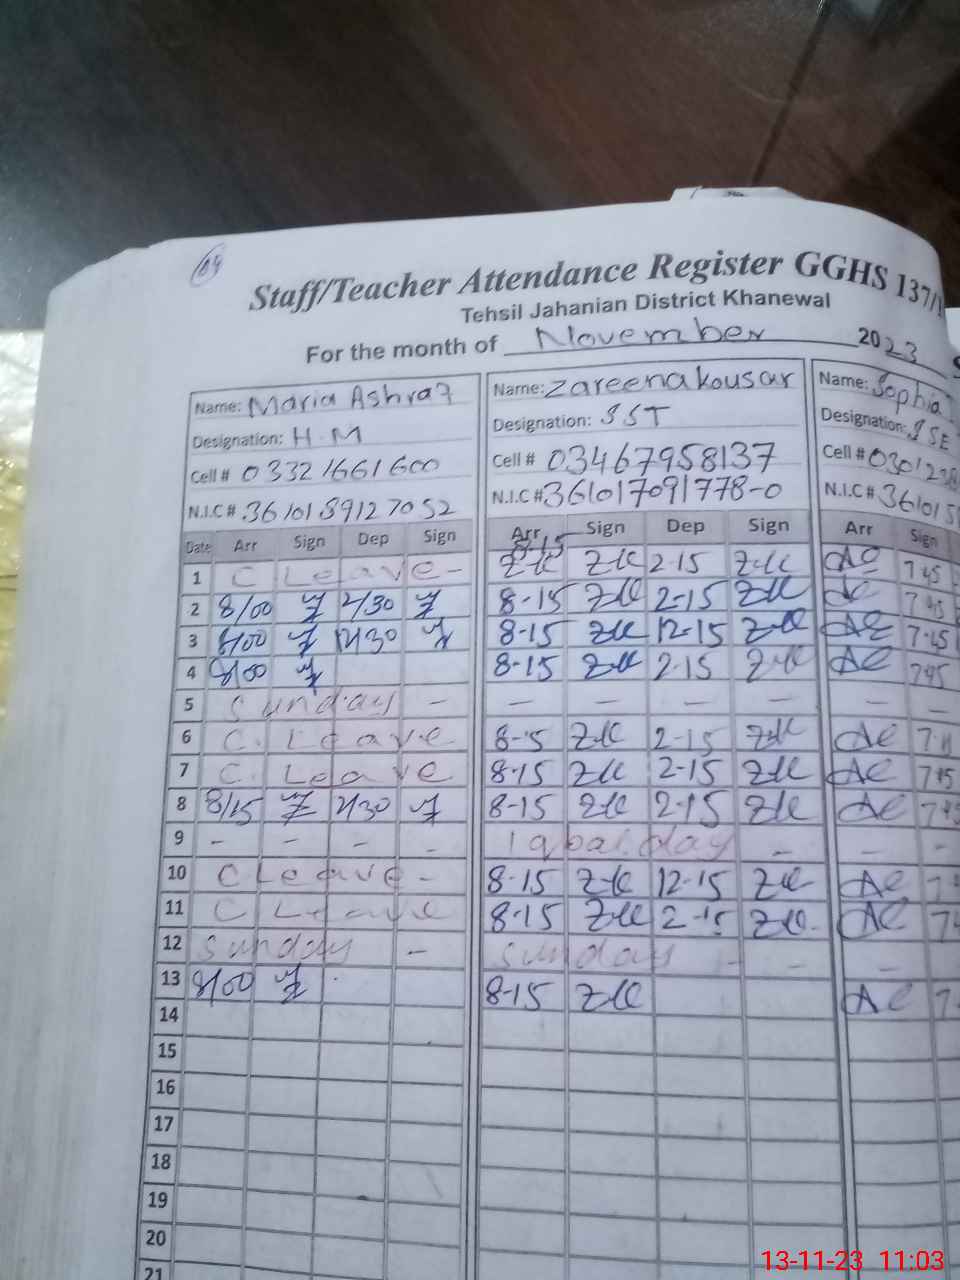 109
Staff/Teacher Attendance Register GGHS 137/1
Tehsil Jahanian District Khanewal
For the month of November 2023
Name: Maria Ashraf Name: Zareena kousar Name: Sophia
Designation: H.M Designation: SST Designation: SSE
Cell # 03321661600 Cell # 03467958137 Cell # 0301238
N.I.C # 3610189127052 N.I.C # 361017091778-0 N.I.C # 36101
Date Arr Sign Dep Sign Arr Sign Dep Sign Arr Sign
8-15
1 C Leave - ZK ZK 2-15 ZK AE 745
2 8/00 2/30 8-15 ZK 2-15 ZK AE 745
3 8/00 12/30 8-15 ZK 12-15 ZK AE 7-45
4 8/00 8-15 ZK 2-15 ZK AE 745
5 Sunday - - - - - - -
6 C. Leave 8-5 ZK 2-15 ZK AE
7 C. Leave 8-15 ZK 2-15 ZK AE 745
8 8/15 2/30 8-15 ZK 2-15 ZK AE 745
9 - - - - Iqbal day - - -
10 C Leave - 8-15 ZK 12-15 ZK AE 7
11 C Leave 8-15 ZK 2-15 ZK AE 7
12 Sunday - Sunday - - -
13 8/00 8-15 ZK AE 7
14
15
16
17
18
19
20
21
13-11-23 11:03